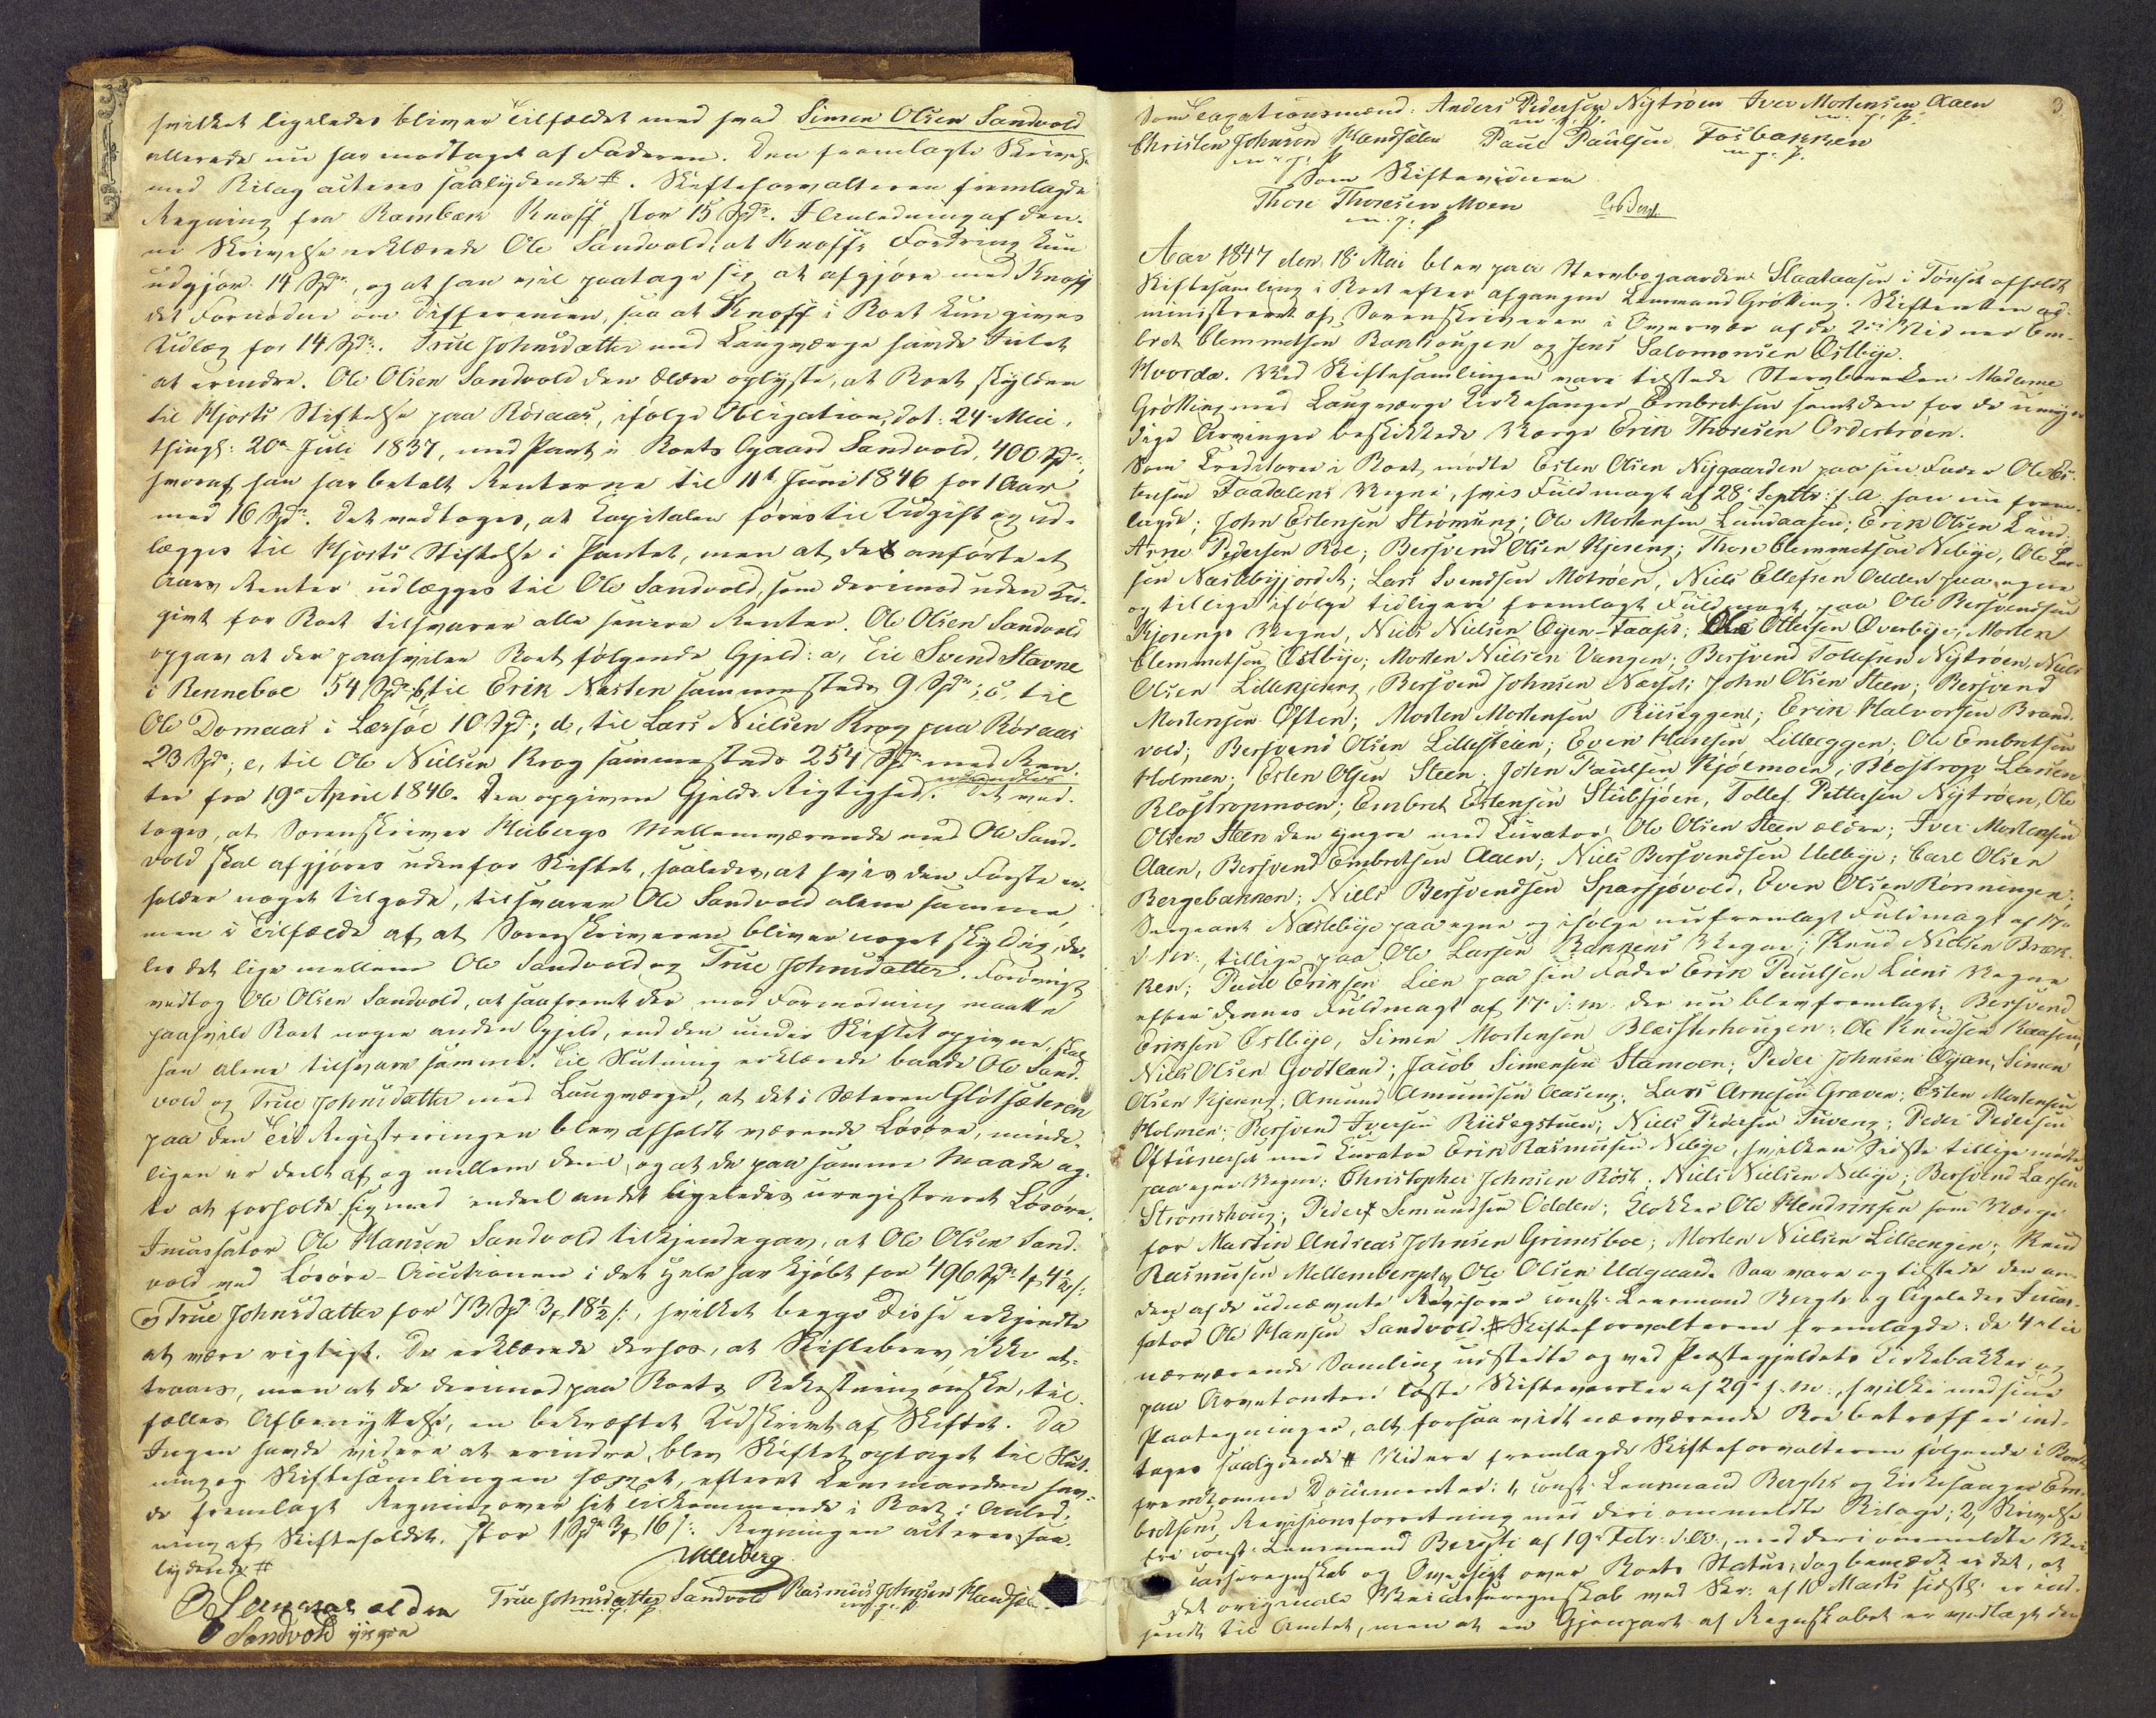 hvilket ligeledes bliver Tilfældet med hvad Simen Olsen Sandvold
allerede nu har modtaget af Faderen. Den fremlagte Skrivelse
med Bilag acteres saalydende #. Skifteforvalteren fremlagde
Regning fra Rambæk Knoff stor 15 Spd. I Anledning af den-
ne Skrivelse erklærede Ole Sandvold, at Knoffs Fordring kun
udgjør 14 Spd, og at han vil paatage sig at afgjøre med Knoff
det Fornødne om Differencen, saa at Knoff i Boet kun gives
Udlæg for 14 Spd. True Johnsdatter med Laugværge havde Intet
at erindre. Ole Olsen Sandvold den Ældre oplyste, at Boet skylder
til Hjorts Stiftelse paa Røraas, ifølge Obligation, dat: 24 Mai,
thingl: 20 Juli 1837, med Pant i Boets Gaard Sandvold, 400 Spd,
hvoraf han har betalt Renterne til 11 Juni 1846 for 1 Aar
med 16 Spd. Det vedtoges, at Capitalen føres til Udgift og ud-
lægges til Hjorts Stiftelse i Pantet, men at det anførte et
Aars Renter udlægges til Ole Sandvold, som derimod uden Ud-
givt for Boet tilsvarer alle senere Renter. Ole Olsen Sandvold
opgav at der paahviler Boet følgende Gjeld: a, til Svend Stavne
i Renneboe 54 Spd b, til Erik Næsten sammesteds 9 Spd; c, til
Ole Domaas i Læsøe 10 Spd; d, til Lars Nielsen Krog paa Røraas
23 Spd; e, til Ole Nielsen Krog sammesteds 254 Spd med Ren-
ter fra 19 April 1846. Den opgivne Gjelds Rigtighed erkjendtes. Det ved-
toges, at Sorenskriver Mübergs Mellemværende med Ole Sand-
vold skal afgjøres udenfor Skiftet, saaledes, at hvis den Første er-
holder noget tilgode, tilsvarer Ole Sandvold alene samme,
men i Tilfælde af at Sorenskriveren bliver noget skyldig, de-
les det lige mellem Ole Sandvold og True Johnsdatter. Forøvrigt
vedtog Ole Olsen Sandvold, at saafremt der mod Formodning maatte
paahvile Boet nogen anden Gjeld, end den under Skiftet opgivne, skal
han alene tilsvare samme. Til Slutning erklærede baade Ole Sand-
vold og True Johnsdatter med Laugværge, at det i Sæteren Glötsæteren
paa den Tid Registreringen blev afholdt værende Løsøre, minde-
ligen er deelt af og mellem dem, og at de paa samme Maade ag-
te at forholde sig med endeel andet ligeledes uregistreret Løsøre.
Incassator Ole Hansen Sandvold tilkjendegav, at Ole Olsen Sand-
vold ved Løsøre-Auctionen i det Hele har kjøbt for 496 Spd 1 # 4½ s:
og True Johnsdatter for 73 Spd 3 # 18½ s:, hvilket begge Disse erkjendte
at være rigtigt. De erklærede derhos, at Skiftebrev ikke at-
traaes, men at de derimod paa Boets Bekostning ønske, til
fælles Afbenyttelse, en bekræftet Udskrivt af Skiftet. Da
Ingen havde videre at erindre, blev Skiftet optaget til Slut-
ning og Skiftesamlingen hævet, efterat Lensmanden hav-
de fremlagt Regning over sit Tilkommende i Boet i Anled-
ning af Skifteholdet, stor 1 Spd 3 # 16 s: Regningen acteres saa-
lydende #
Müberg
O S Sandvold
True Johnsdatter Sandvold Rasmus Johnsen
m. g. P. m. g. P
3
Som Taxationsmænd: Anders Pedersen Nytrøen Iver Mortensen Aaen
m. g. P. m. g. P.
Christen Johnsen Handselen Paul Paulsen Tosbakken
m. g. P m. g. P.
Som Skiftevidner
Thore Thoresen Moen
m. g. P
Aar 1847 den 18 Mai blev paa Stervbogaarden Slaataasen i Tønset afholdt
Skiftesamling i Boet efter afgangne Lensmand Grøtting. Skifteretten ad-
ministreret af Sorenskriveren i Overvær af de 2 Vidner Em-
bret Clemmetsen Bankhougen og Jens Salomonsen Østbye.
Hvorda. Ved Skiftesamlingen vare tilstede Stervboenken Madame
Grøtting med Laugværge Kirkesanger Embretsen samt den for de umyn-
dige Arvinger beskikkede Værge Erik Thoresen Ordestrøen.
Som Creditorer i Boet mødte Esten Olsen Nygaarden paa sin Fader Ole Es-
tensen Faadalens Vegne, hvis Fuldmagt af 28 Septbr: f. A. han nu frem-
lagde; John Estensen Strømeng; Ole Mortensen Lundaasen; Erik Olsen Lund.
Arne Pedersen Roe; Bersvend Olsen Kjereng; Thore Clemmetsen Nebye, Ole Lar-
sen Næstebyjordet; Lars Svendsen Motrøen, Niels Ellefsen Odden paa egne
og tillige ifølge tidligere fremlagt Fuldmagt, paa Ole Bersvendsen
Kjerengs Vegne, Niels Nielsen Øyen-Faaset; Ole Ottersen Øverbye; Morten
Clemmetsen Østbye; Morten Nielsen Vangen; Bersvend Tollefsen Nytrøen, Niels
Olsen Lillekjereng, Bersvend Johnsen Næset; John Olsen Steen; Bersvend
Mortensen Øften; Morten Mortensen Riiseggen; Erik Halvorsen Brand-
vold; Bersvend Olsen Lillesteien; Even Hansen Lilleeggen; Ole Embretsen
Holmen; Esten Olsen Steen; John Paulsen Kjølmoen; Blostrop Larsen
Blostropmoen; Embret Estensen Stubsjøen, Tollef Pettersen Nytrøen, Ole
Olsen Steen den yngre med Curator Ole Olsen Steen ældre; Iver Mortensen
Aaen, Bersvend Embretsen Aaen; Niels Bersvendsen Uelbye; Carl Olsen
Bergebakken; Niels Bersvendsen Sparsjøvold, Even Olsen Rønningen;
Sergeant Næstebye paa egne og ifølge nu fremlagt Fuldmagt af 17
d. M:, tillige paa Ole Larsen Bakkens Vegne; Knud Nielsen Bræk-
ken; Paul Eriksen Lien paa sin Fader Erik Paulsen Liens Vegne
efter dennes Fuldmagt af 17 d. m. der nu blev fremlagt; Bersvend
Eriksen Østbye, Simen Mortensen Blæsterhougen; Ole Knudsen Kaasen,
Niels Olsen Godtland; Jacob Simensen Stamoen; Peder Johnsen Øyan, Simen
Olsen Kjereng; Amund Amundsen Aaseng; Lars Arnesen Graven; Esten Mortensen
Holmen; Bersvend Iversen Riisegstuen; Niels Pedersen Tuveng; Peder Pedersen
med Curator Erik Rasmussen Nebye, hvilken Sidste tillige mødte
paa egne Vegne; Christopher Johnsen Røst; Niels Nielsen Nebye; Bersvend Larsen
Strømshoug; Peder Semundsen Odden; Klokker Ole Hendriksen som Værge
for Martin Andreas Johnsen Grimsboe; Morten Nielsen Lilleengen; Knud
Rasmussen Mellemberget og Ole Olsen Udgaard. Saa vare og tilstede den ene
den af de udnævnte Revisorer const. Lensmand Bergts og ligeledes Incas-
sator Ole Hansen Sandvold. # Skifteforvalteren fremlagde: de 4 til
nærværende Samling udstedte og ved Præstegjeldets Kirkebakker og
paa Arvetomten læste Skiftevarsler af 29 f. M:, hvilke med sine
Paategninger, alt forsaavidt nærværende Boe betræffer ind-
tages saalydende # Videre fremlagde Skifteforvalteren følgende i Boet
fremkomne Documenter: 1, const. Lensmand Bergts og Kirkesanger Em-
bretsens Revisionsforretning med deri ommeldte Bilage; 2, Skrivelse
fra const. Lensmand Bergts af 19 Febr: d. A., med deri ommeldte Vei
casseregnskab og Oversigt over Boets Status; dog bemærkes det, at
det originale Veicasseregnskab ved Skr: af 10 Marts sidstl: er ind-
sendt til Amtet, men at en Gjenpart af Regnskabet er vedlagt den